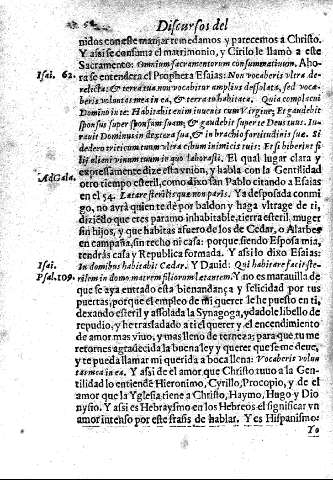 Discursos del
nidos con este manjar remedamos y parecemos a Christo.
Y assi se consuma el matrimonio, y Cirilo le llamò a este
Sacramento: Omnium sacramentorum consummatiuum. Aho-
Isai. 62. ra se entendera el Propheta Esaias: Non vocaberis vltra de-
relicta: & terra tua non vocabitur amplius desolata, sed voca-
beris voluntas mea in ea, & terra tua habitata. Quia complacui
Domino in te: Habitabit enim iuuenis cum Virgine: Et gaudebit
sponsus super sponsam suam; & gaudebit super te Deus tuus. Iu-
rauit Dominus in dextera sua, & in brachio fortitudinis suæ. Si
dedero triticum tuum vltra cibum inimicis tuis: Et si biberint fi-
lij alieni vinum tuum in quo laborasti. El qual lugar clara y
expressamente dize esta vnión, y habla con la Gentilidad
AdGala. otro tiempo esteril, como dixo san Pablo citando a Esaias
en el 54. Lætare sterilis quæ non paris. Ya desposada conmi
go, no avrà quien te dè por baldon y haga vltrage de ti,
diziẽdo que eres paramo inhabitable, tierra esteril, muger
sin hijos, y que habitas afuero de los de Cedar, o Alarbes
en campaña, sin techo ni casa: porque siendo Esposa mia,
tendràs casa y Republica formada. Y assi lo dixo Esaias:
Isai. In domibus habitabit Cedar. Y Dauid: Qui habitare facit ste-
Psal. 109. rilem in domo, matrem filiorum lætantem. Y no es marauilla de
que se aya entrado esta bienandança y felicidad por tus
puertas, porque el empleo de mi querer le he puesto en ti,
dexando esteril y assolada la Synagoga, y dadole libello de
repudio, y he trasladado a ti el querer y el encendimiento
de amor mas viuo, y mas lleno de terneza; para que tu me
retornes agradecida la buena ley y querer que se me deue,
y te pueda llamar mi querida a boca llena: Vocaberis volun
tas mea in ea. Y assi de el amor que Christo tuuo a la Gen-
tilidad lo entiẽde Hieronimo, Cyrillo, Procopio, y de el
amor que la Yglesia tiene a Christo, Haymo, Hugo y Dio
nysio. Y assi es Hebraysmo en los Hebreos el significar vn
amor intenso por este frasis de hablar. Y es Hispanismo:
Yo